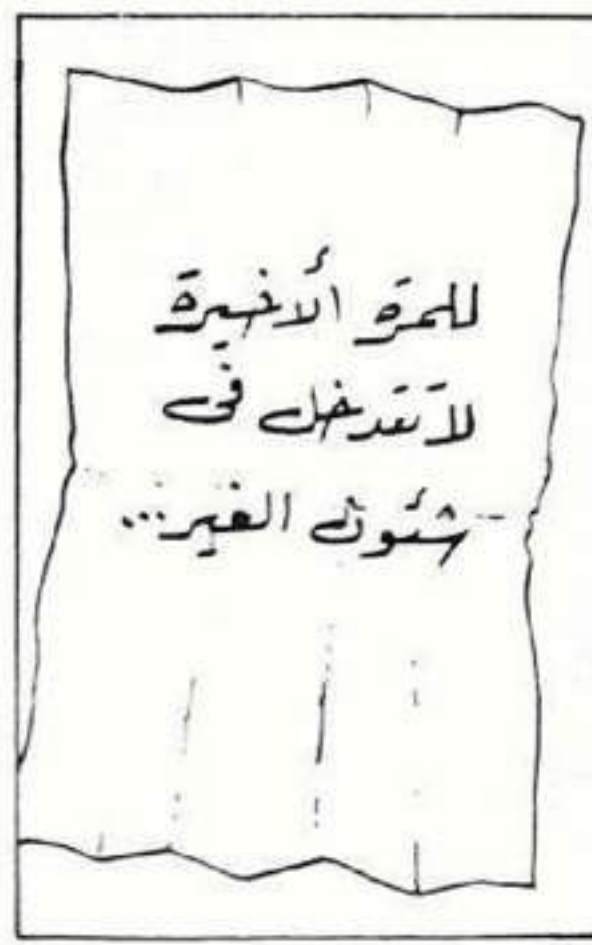 للمرة الأخيرة
لا تتدخل فى
شئون الغير...